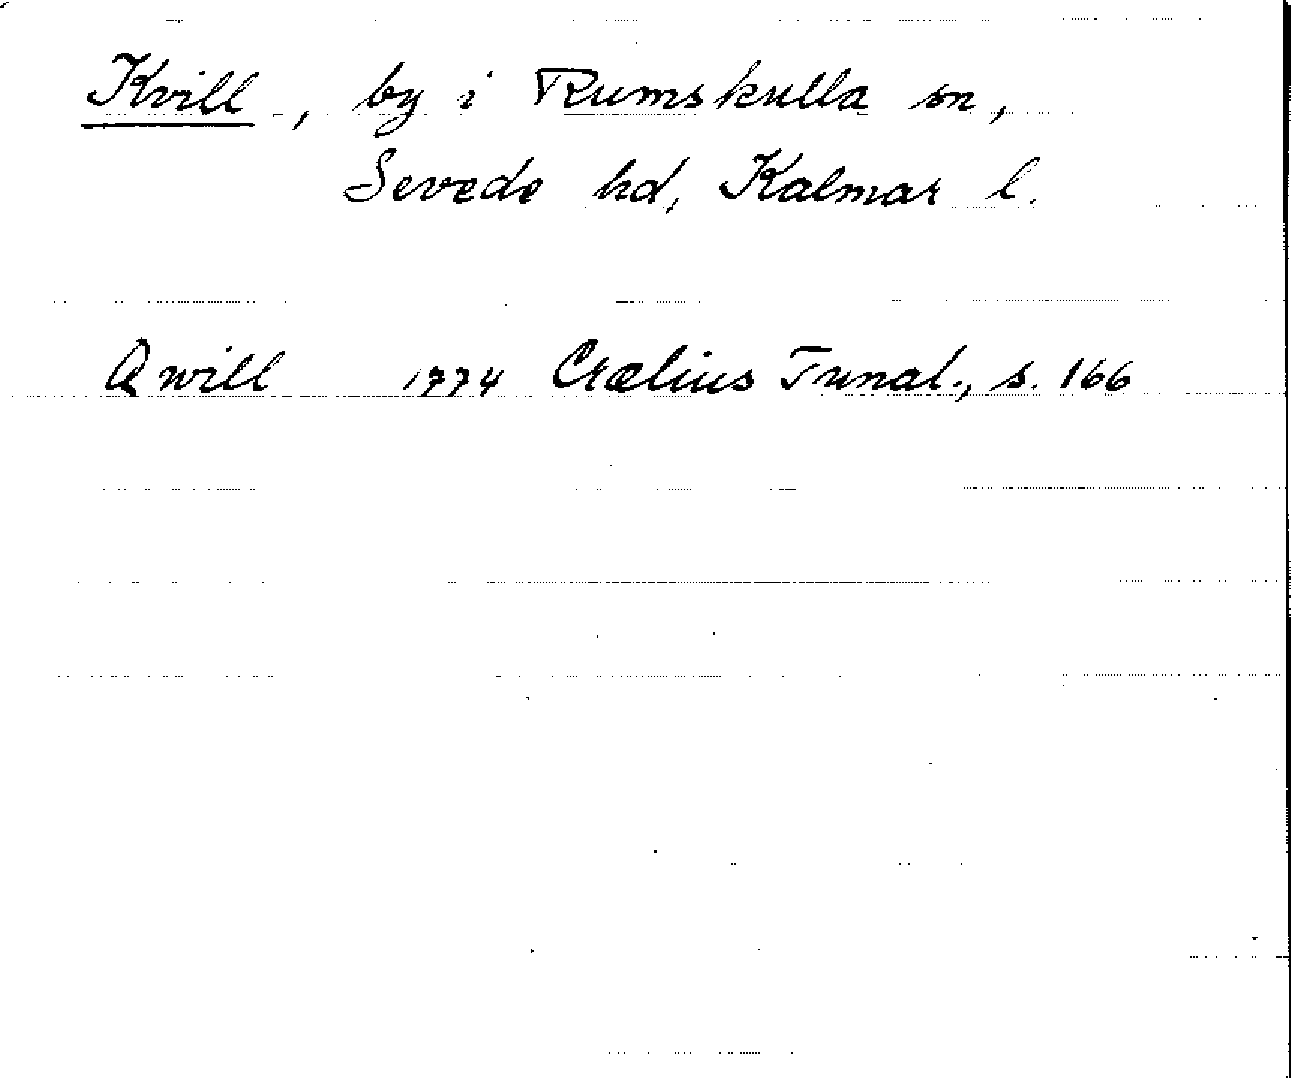 Kvill, by i Rumskulla sn,
Sevede hd, Kalmar l.
Qwill 1774 Cræelius Tunal., s. 166